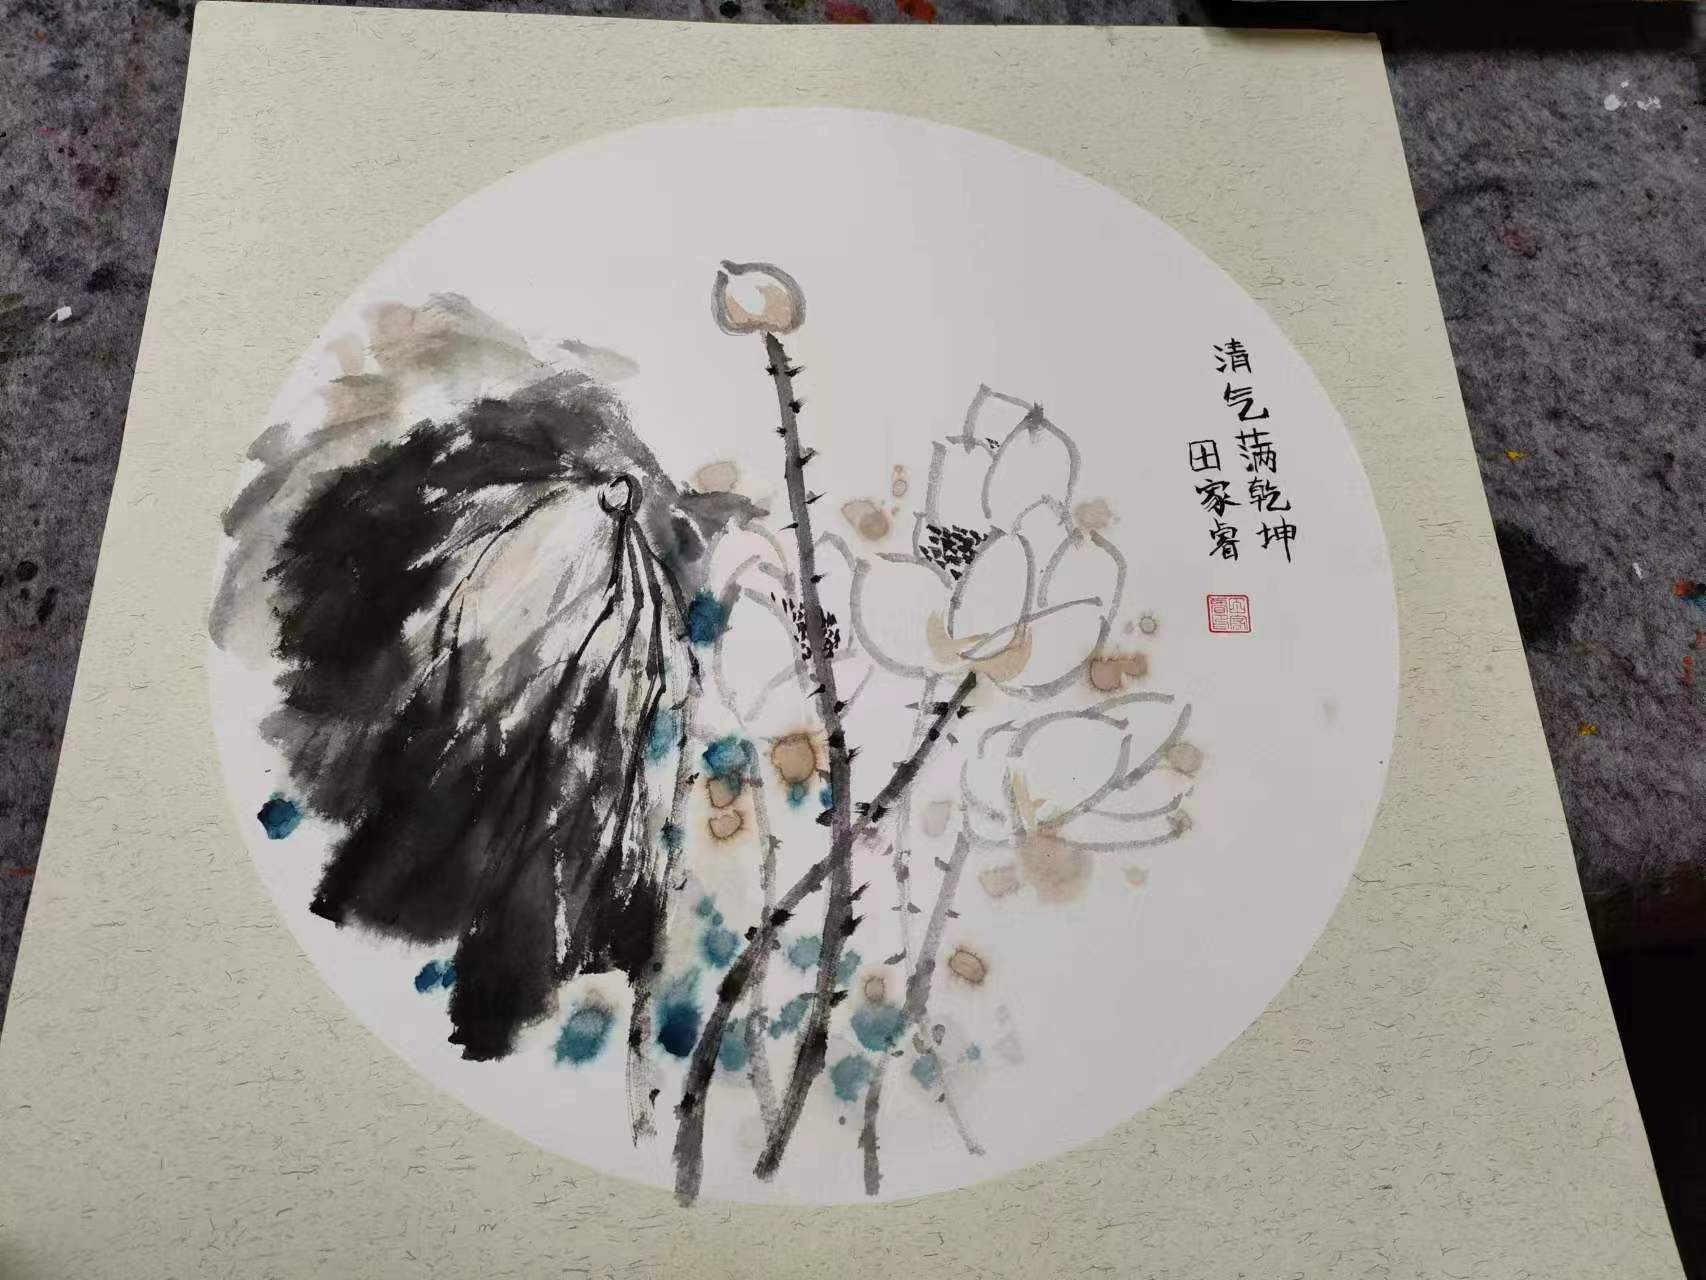 清气满乾坤
田家睿